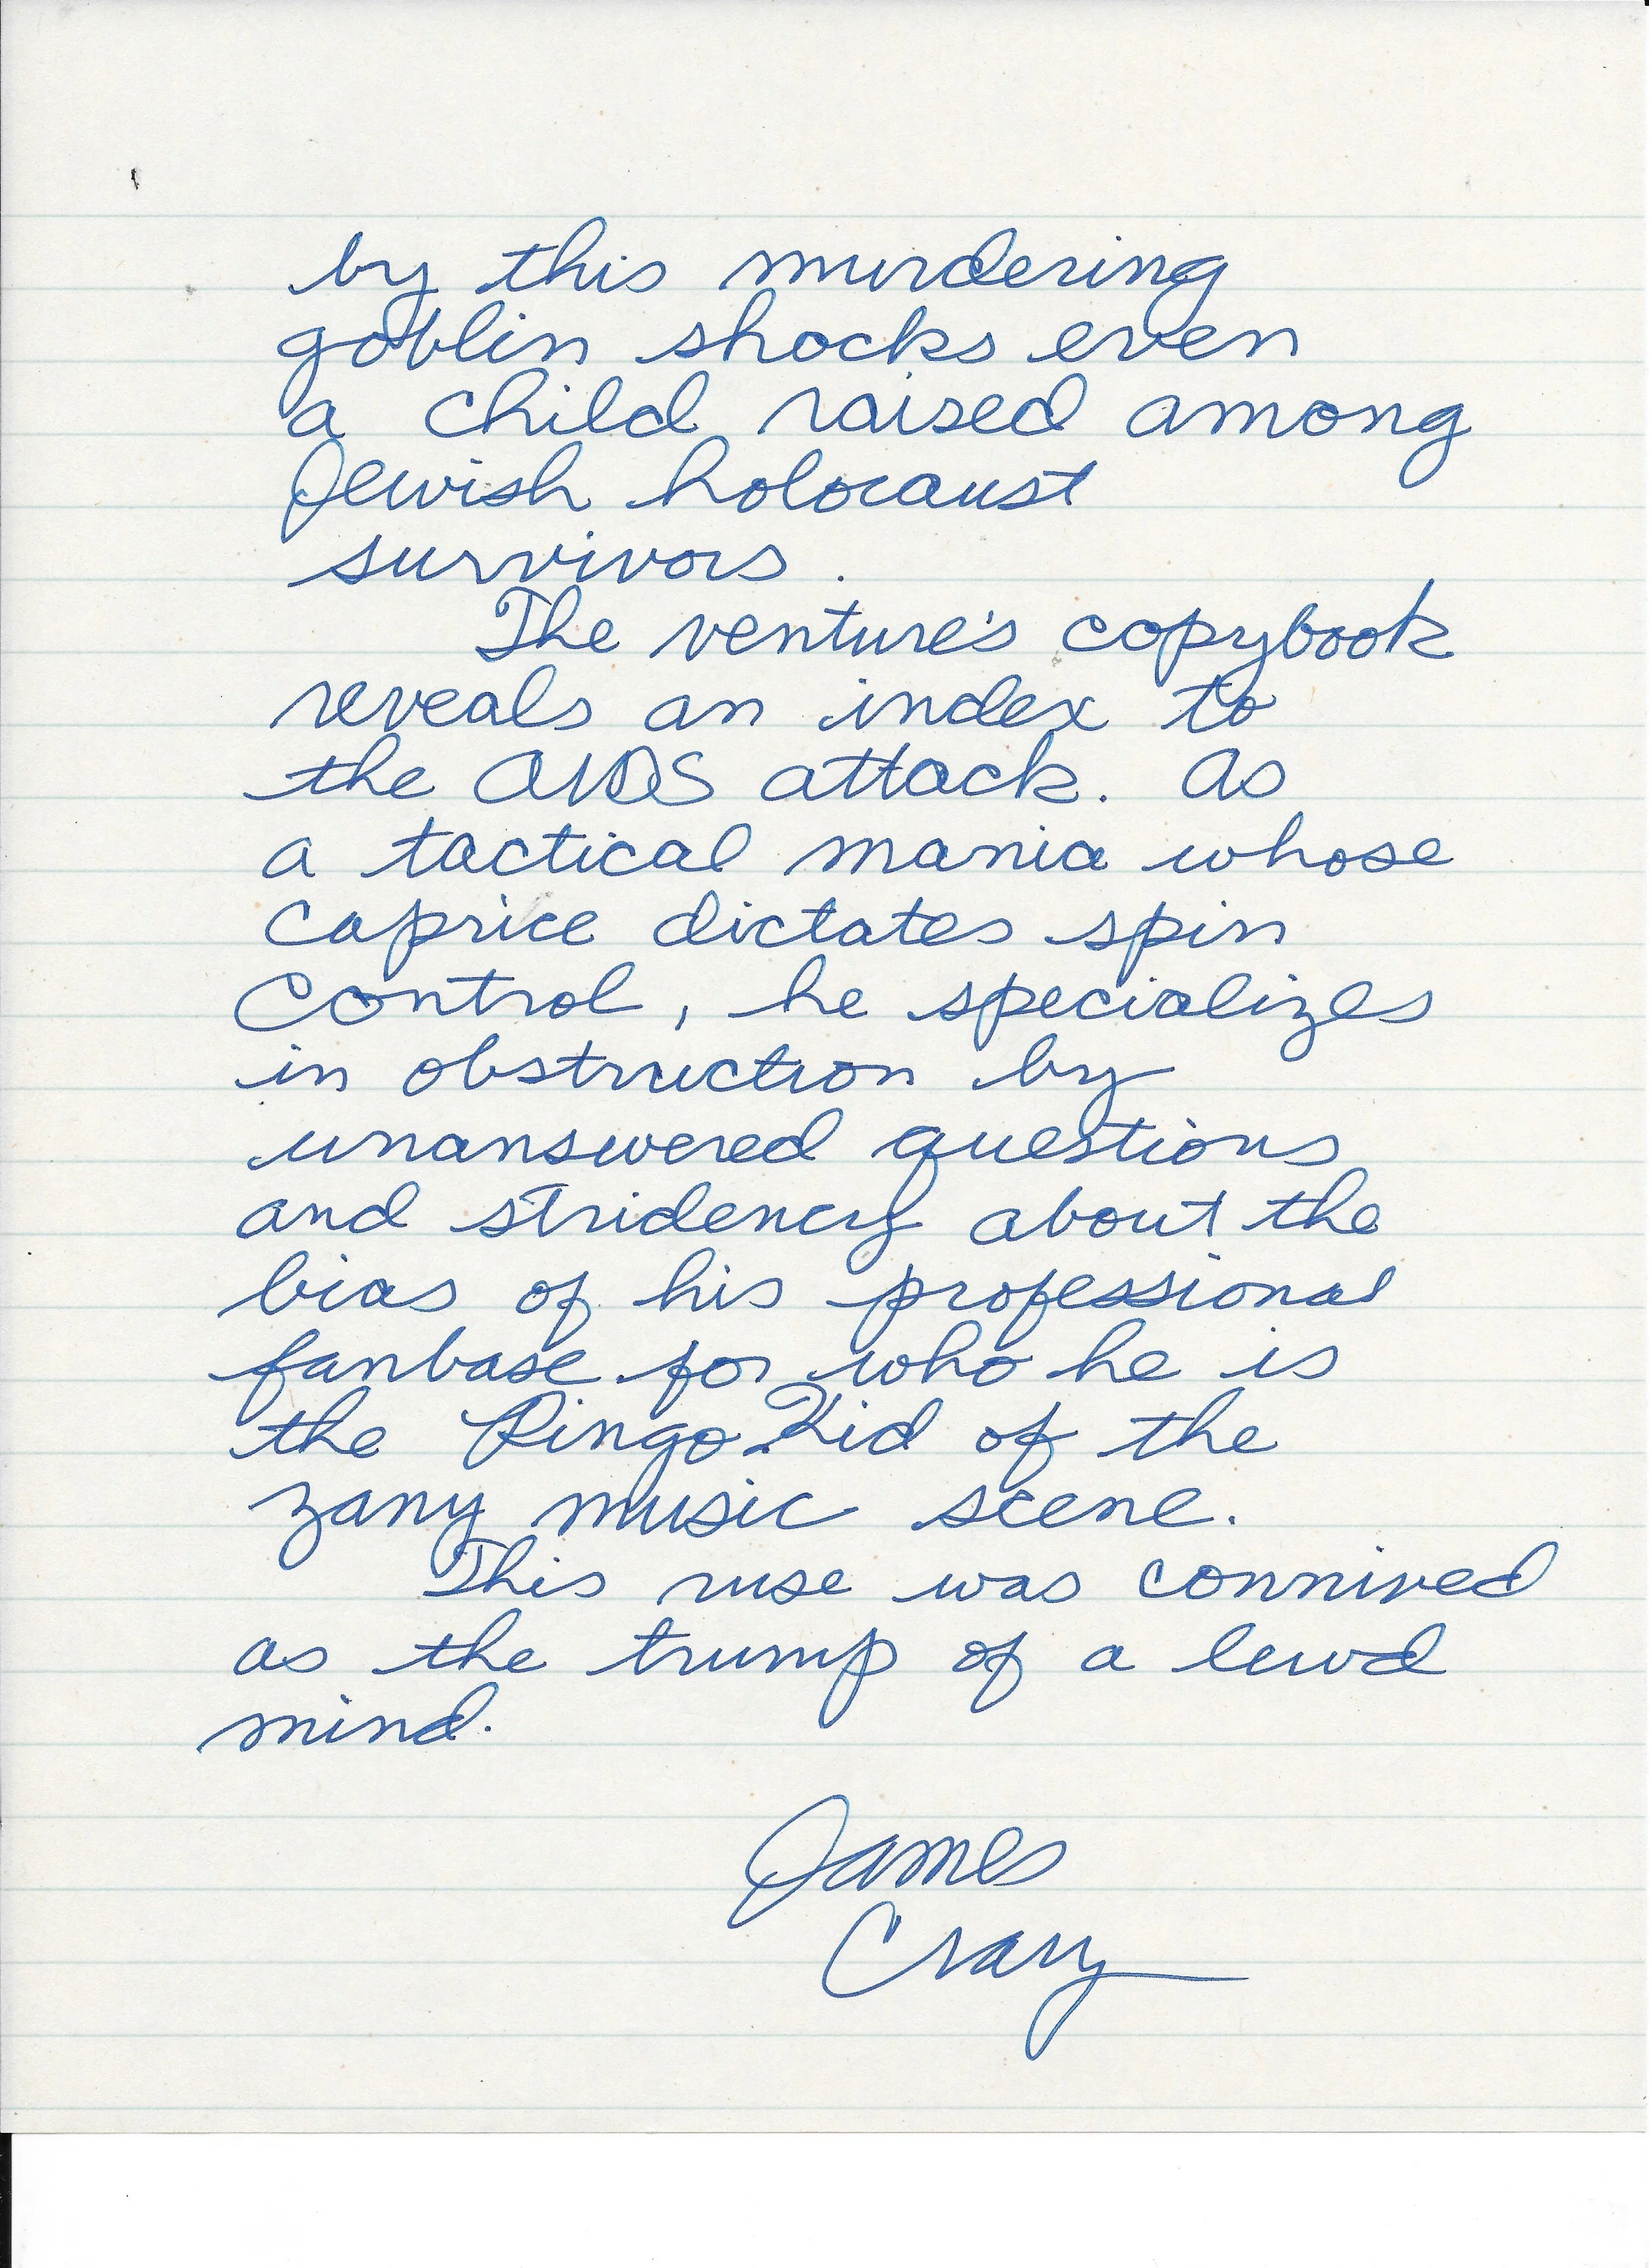 by this murdering
goblin shocks even
a child raised among
Jewish holocaust
survivors.
The venture's copybook
reveals an index to
the AIDS attack. As
a tactical mania whose
caprice dictates spin
control, he specializes
in obstruction by
unanswered questions
and stridency about the
bias of his professional
fanbase for who he is
the Ringo Kid of the
zany music scene.
This ruse was connived
as the trump of a lewd
mind.
James
Crary